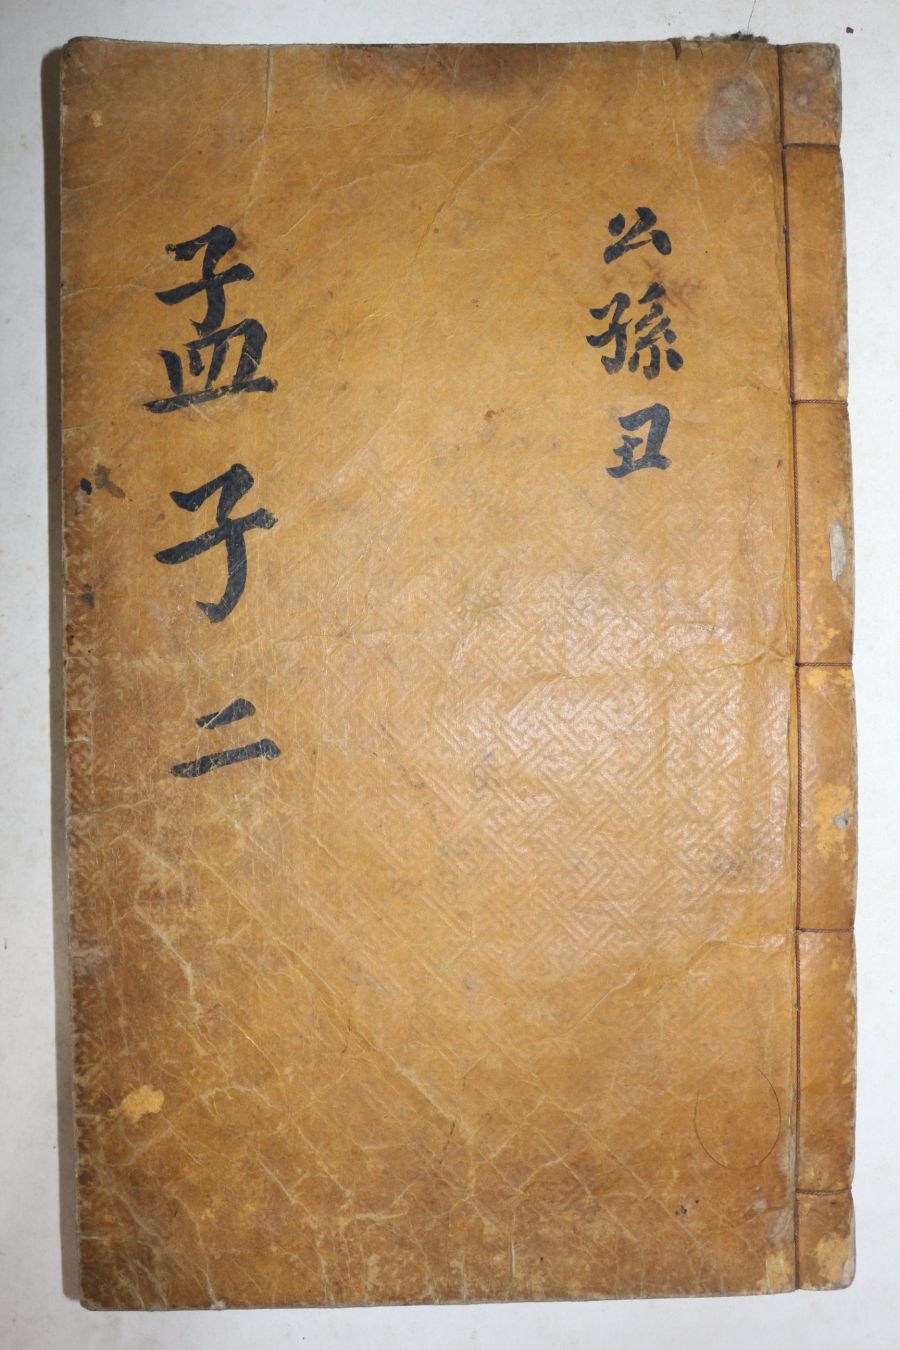 公孫丑
孟子 二